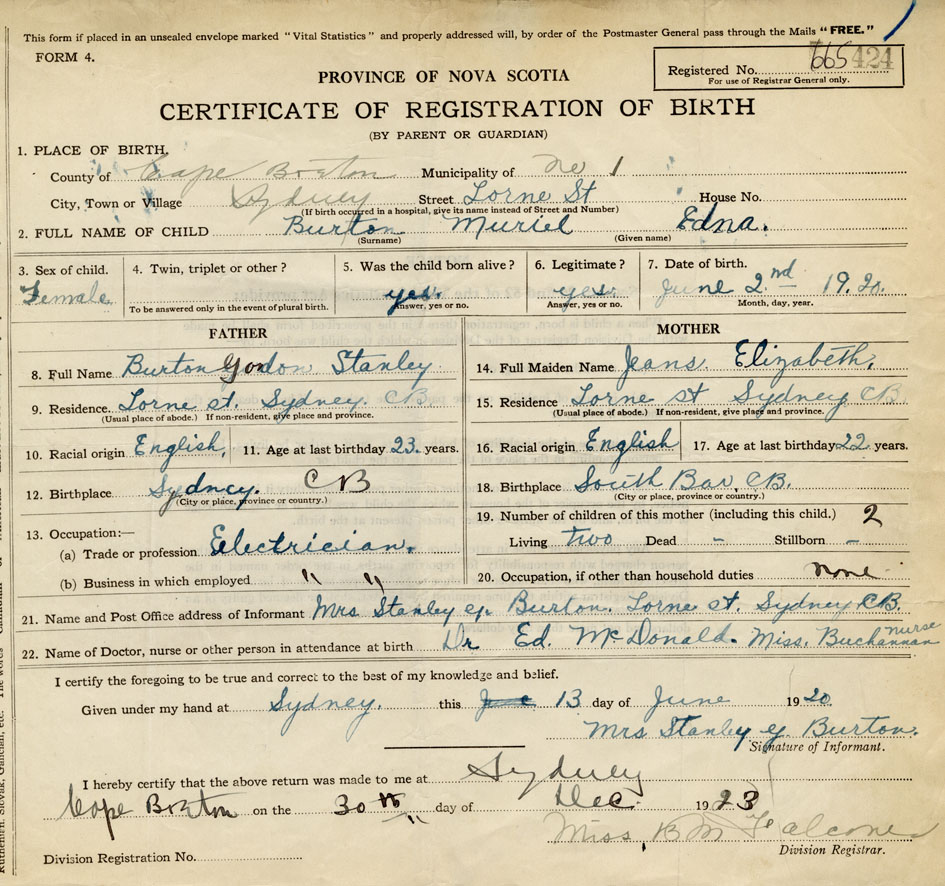 This form if placed in an unsealed envelope marked "Vital Statistics" and properly addressed will, by order of the Postmaster General pass through the Mails "FREE."
FORM 4.
665 424
Registered No.
For use of Registrar General only.
PROVINCE OF NOVA SCOTIA
CERTIFICATE OF REGISTRATION OF BIRTH
(BY PARENT OR GUARDIAN)
1. PLACE OF BIRTH.
County of Cape Breton Municipality of No 1
City, Town or Village Sydney Street Lorne St House No.
(If birth occurred in a hospital, give its name instead of Street and Number)
2. FULL NAME OF CHILD Burton Muriel Edna.
(Surname) (Given name)
3. Sex of child. 4. Twin, triplet or other? 5. Was the child born alive? 6. Legitimate? 7. Date of birth.
Female yes. yes. June 2nd 1920.
To be answered only in the event of plural birth. Answer, yes or no. Answer, yes or no. Month, day, year.
FATHER MOTHER
8. Full Name Burton Gordon Stanley 14. Full Maiden Name Jeans. Elizabeth.
9. Residence. Lorne st. Sydney. CB. 15. Residence Lorne st Sydney CB
(Usual place of abode.) If non-resident, give place and province. (Usual place of abode.) If non-resident, give place and province.
10. Racial origin English, 11. Age at last birthday 23. years. 16. Racial origin English 17. Age at last birthday 22. years.
12. Birthplace Sydney. CB 18. Birthplace South Bar, CB.
(City or place, province or country.) (City or place, province or country.)
13. Occupation:— 19. Number of children of this mother (including this child.) 2
(a) Trade or profession Electrician. Living two Dead - Stillborn -
(b) Business in which employed " " 20. Occupation, if other than household duties none
21. Name and Post Office address of Informant Mrs Stanley G. Burton. Lorne st. Sydney CB.
22. Name of Doctor, nurse or other person in attendance at birth Dr Ed. McDonald. Miss. Buchannan nurse
I certify the foregoing to be true and correct to the best of my knowledge and belief.
Given under my hand at Sydney. this 13 day of June 1920.
Mrs Stanley G. Burton.
Signature of Informant.
I hereby certify that the above return was made to me at Sydney
Cape Breton on the 30th day of Dec. 1923
Miss B M Falconer
Division Registrar.
Division Registration No.